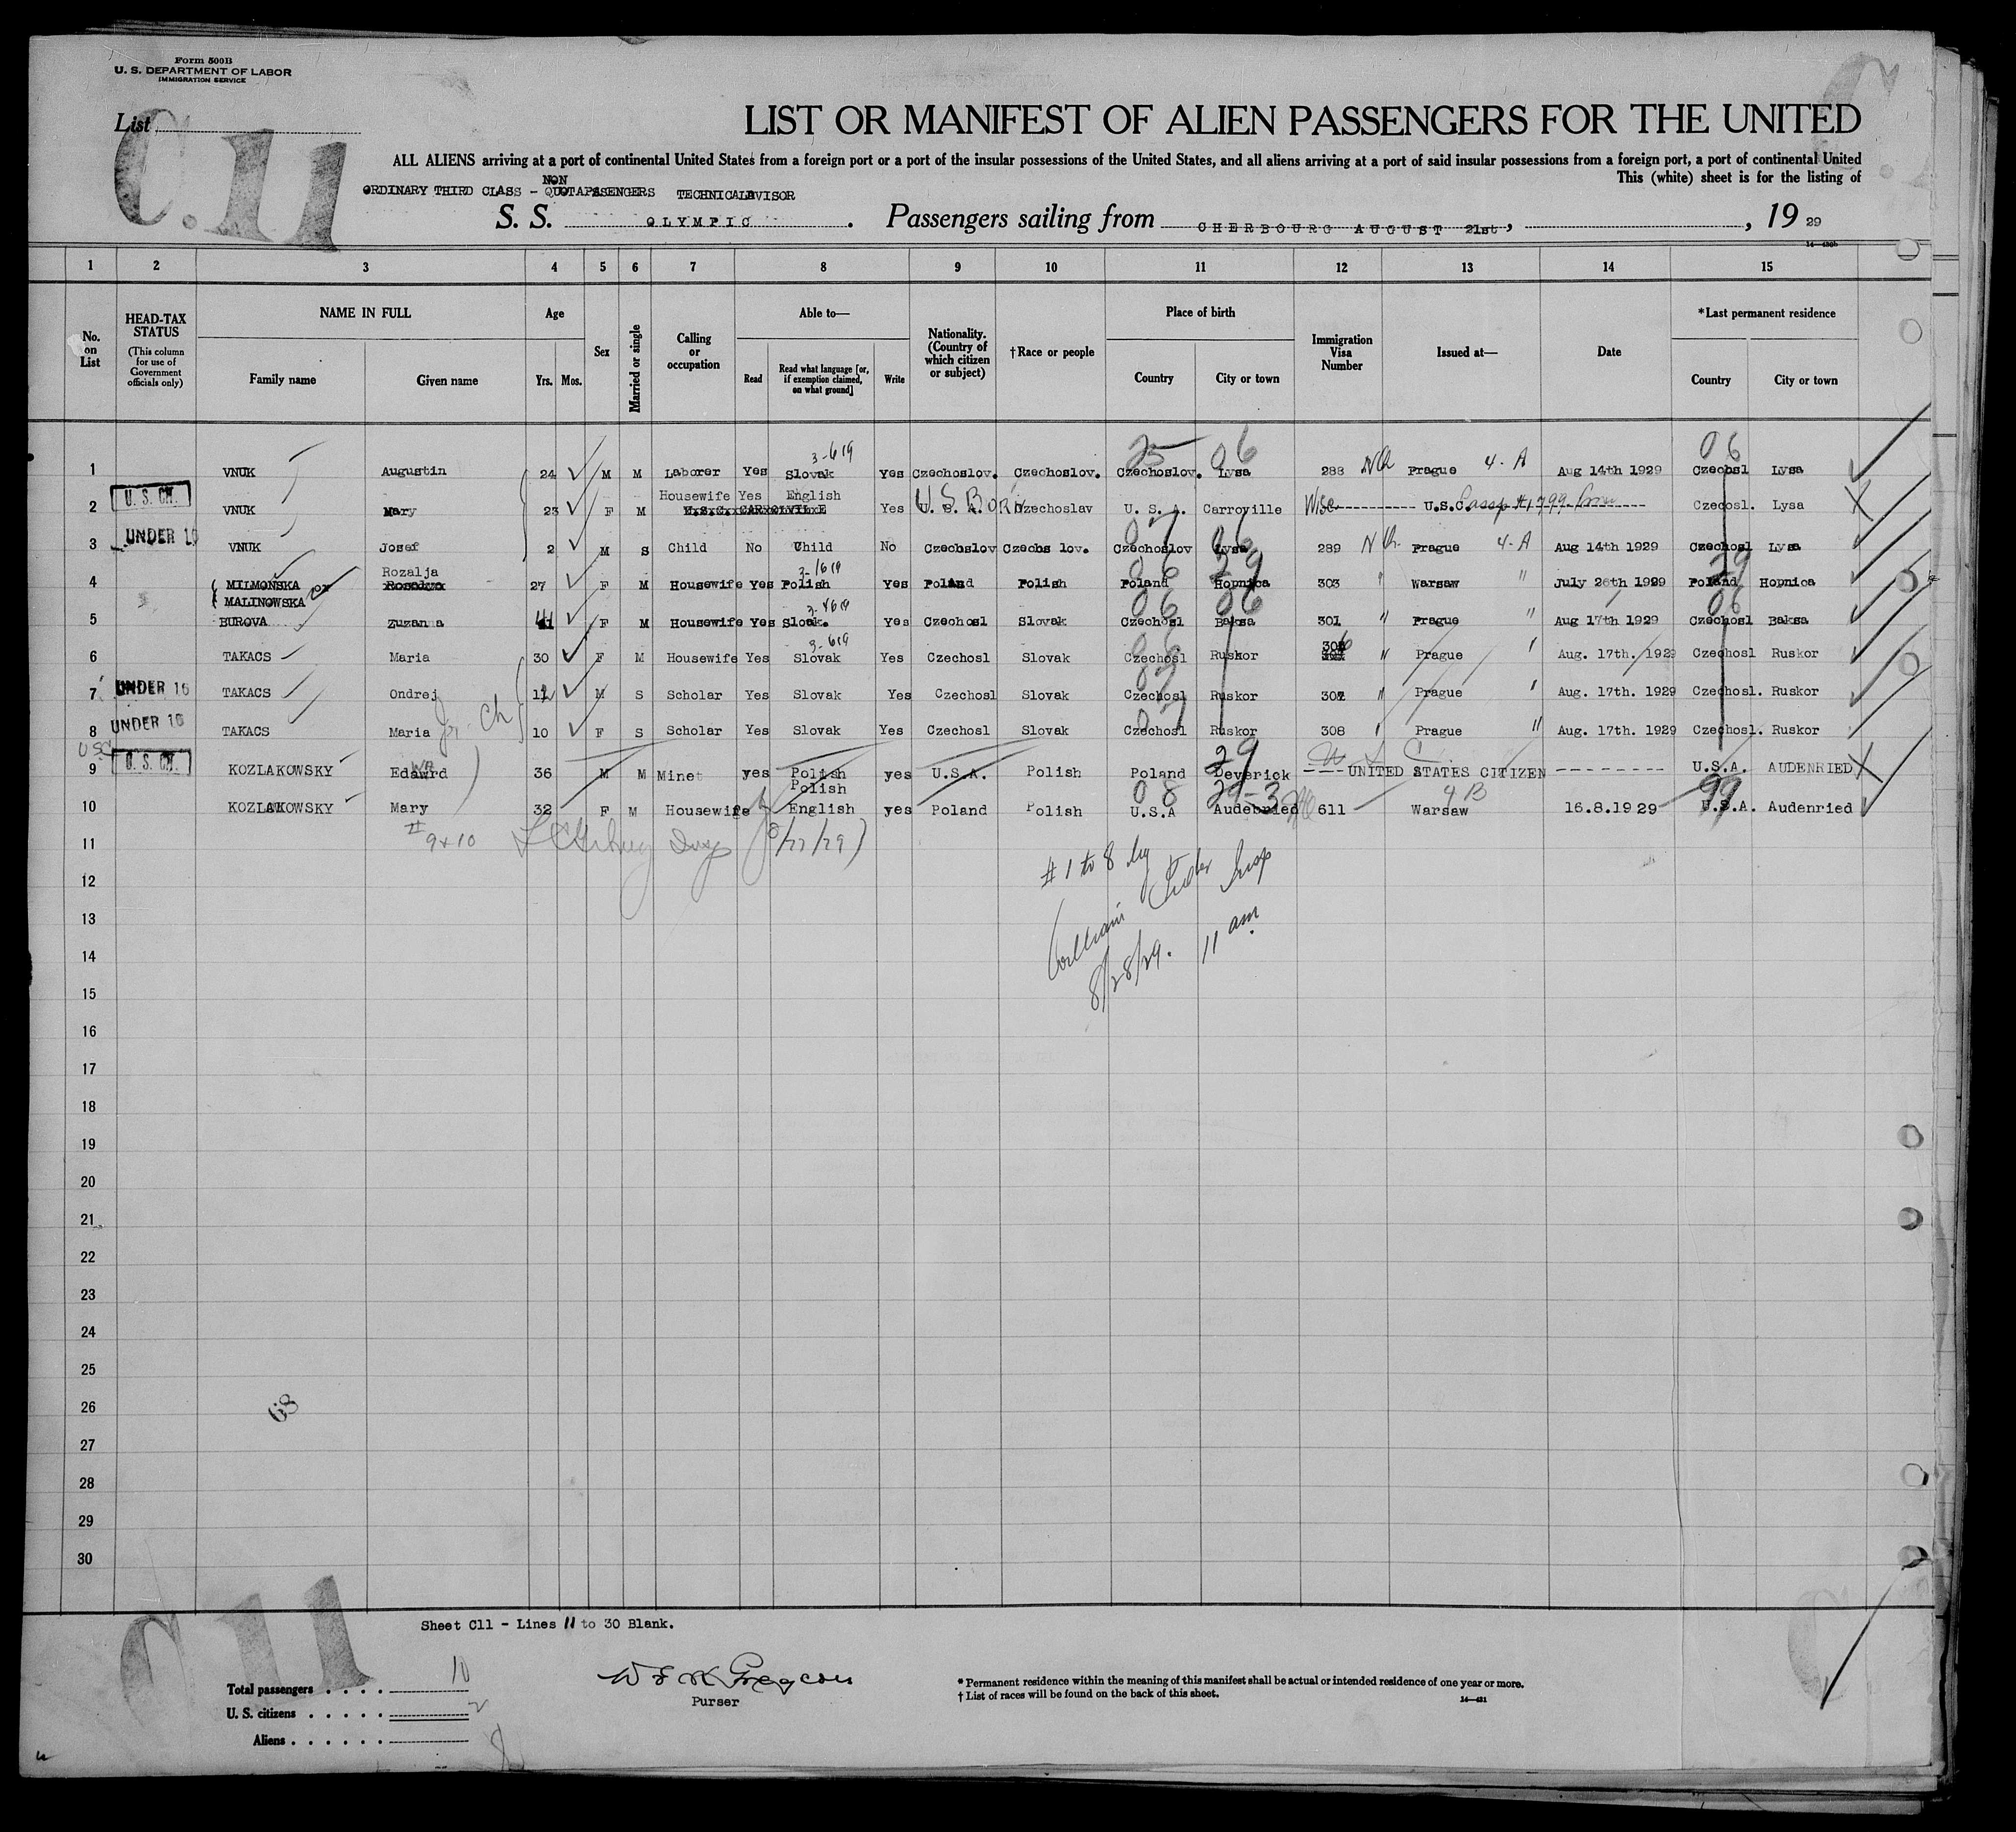 Form 500B
U. S. DEPARTMENT OF LABOR
IMMIGRATION SERVICE
List
C.11
LIST OR MANIFEST OF ALIEN PASSENGERS FOR THE UNITED
ALL ALIENS arriving at a port of continental United States from a foreign port or a port of the insular possessions of the United States, and all aliens arriving at a port of said insular possessions from a foreign port, a port of continental United
This (white) sheet is for the listing of
NON
ORDINARY THIRD CLASS - QUOTAPASSENGERS TECHNICALADVISOR
S. S. OLYMPIC. Passengers sailing from CHERBOURG AUGUST 21st, , 19 29
14—430b
1 2 3 4 5 6 7 8 9 10 11 12 13 14 15
No. on List
HEAD-TAX STATUS
(This column for use of Government officials only)
NAME IN FULL
Family name Given name
Age
Yrs. Mos.
Sex
Married or single
Calling or occupation
Able to—
Read
Read what language [or, if exemption claimed, on what ground]
Write
Nationality. (Country of which citizen or subject)
†Race or people
Place of birth
Country City or town
Immigration Visa Number
Issued at—
Date
*Last permanent residence
Country City or town
25 06 06
3-619
1 VNUK Augustin 24 M M Laborer Yes Slovak Yes Czechoslov. Czechoslov. Czechoslov. Lysa 288 Prague 4-A Aug 14th 1929 Czechosl Lysa
U. S. CH.
Housewife Yes English
2 VNUK Mary 23 F M Yes U. S. A. Czechoslav U. S. A. Carroville U.S.C. Czechosl. Lysa
U S Born Wisc
UNDER 16
3 VNUK Josef 2 M S Child No Child No Czechoslov Czechs lov. Czechoslov Lysa 289 Prague 4-A Aug 14th 1929 Czechosl Lysa
Rozalja
3-1619
4 MILMONSKA or 27 F M Housewife Yes Polish Yes Poland Polish Poland Hopnica 303 " Warsaw " July 26th 1929 Poland Hopnica
MALINOWSKA
5 BUROVA Zuzanna 41 F M Housewife Yes Sloak. Yes Czechosl Slovak Czechosl Baksa 301 " Prague " Aug 17th 1929 Czechosl Baksa
3-619
6 TAKACS Maria 30 F M Housewife Yes Slovak Yes Czechosl Slovak Czechosl Ruskor 306 " Prague " Aug. 17th. 1929 Czechosl Ruskor
UNDER 16
7 TAKACS Ondrej 12 M S Scholar Yes Slovak Yes Czechosl Slovak Czechosl Ruskor 307 " Prague " Aug. 17th. 1929 Czechosl. Ruskor
UNDER 16
8 TAKACS Maria 10 F S Scholar Yes Slovak Yes Czechosl Slovak Czechosl Ruskor 308 " Prague " Aug. 17th. 1929 Czechosl. Ruskor
USC
U. S. CH.
U S C
9 KOZLAKOWSKY Edward 36 M M Miner yes Polish yes U.S.A. Polish Poland Deverick UNITED STATES CITIZEN U.S.A. AUDENRIED
Polish
4 B
10 KOZLAKOWSKY Mary 32 F M Housewife English yes Poland Polish U.S.A Audenried 611 Warsaw 16.8.1929 U.S.A. Audenried
# 9 & 10
8/27/29
11
# 1 to 8 by
12
William Insp
13
11 am
14
8/28/29.
15
16
17
18
19
20
21
22
23
24
25
26
68
27
28
29
30
C11
Sheet C11 - Lines 11 to 30 Blank.
Total passengers . . . . 10
U. S. citizens . . . . . 2
Aliens . . . . . . 8
Purser
* Permanent residence within the meaning of this manifest shall be actual or intended residence of one year or more.
† List of races will be found on the back of this sheet.
14—431